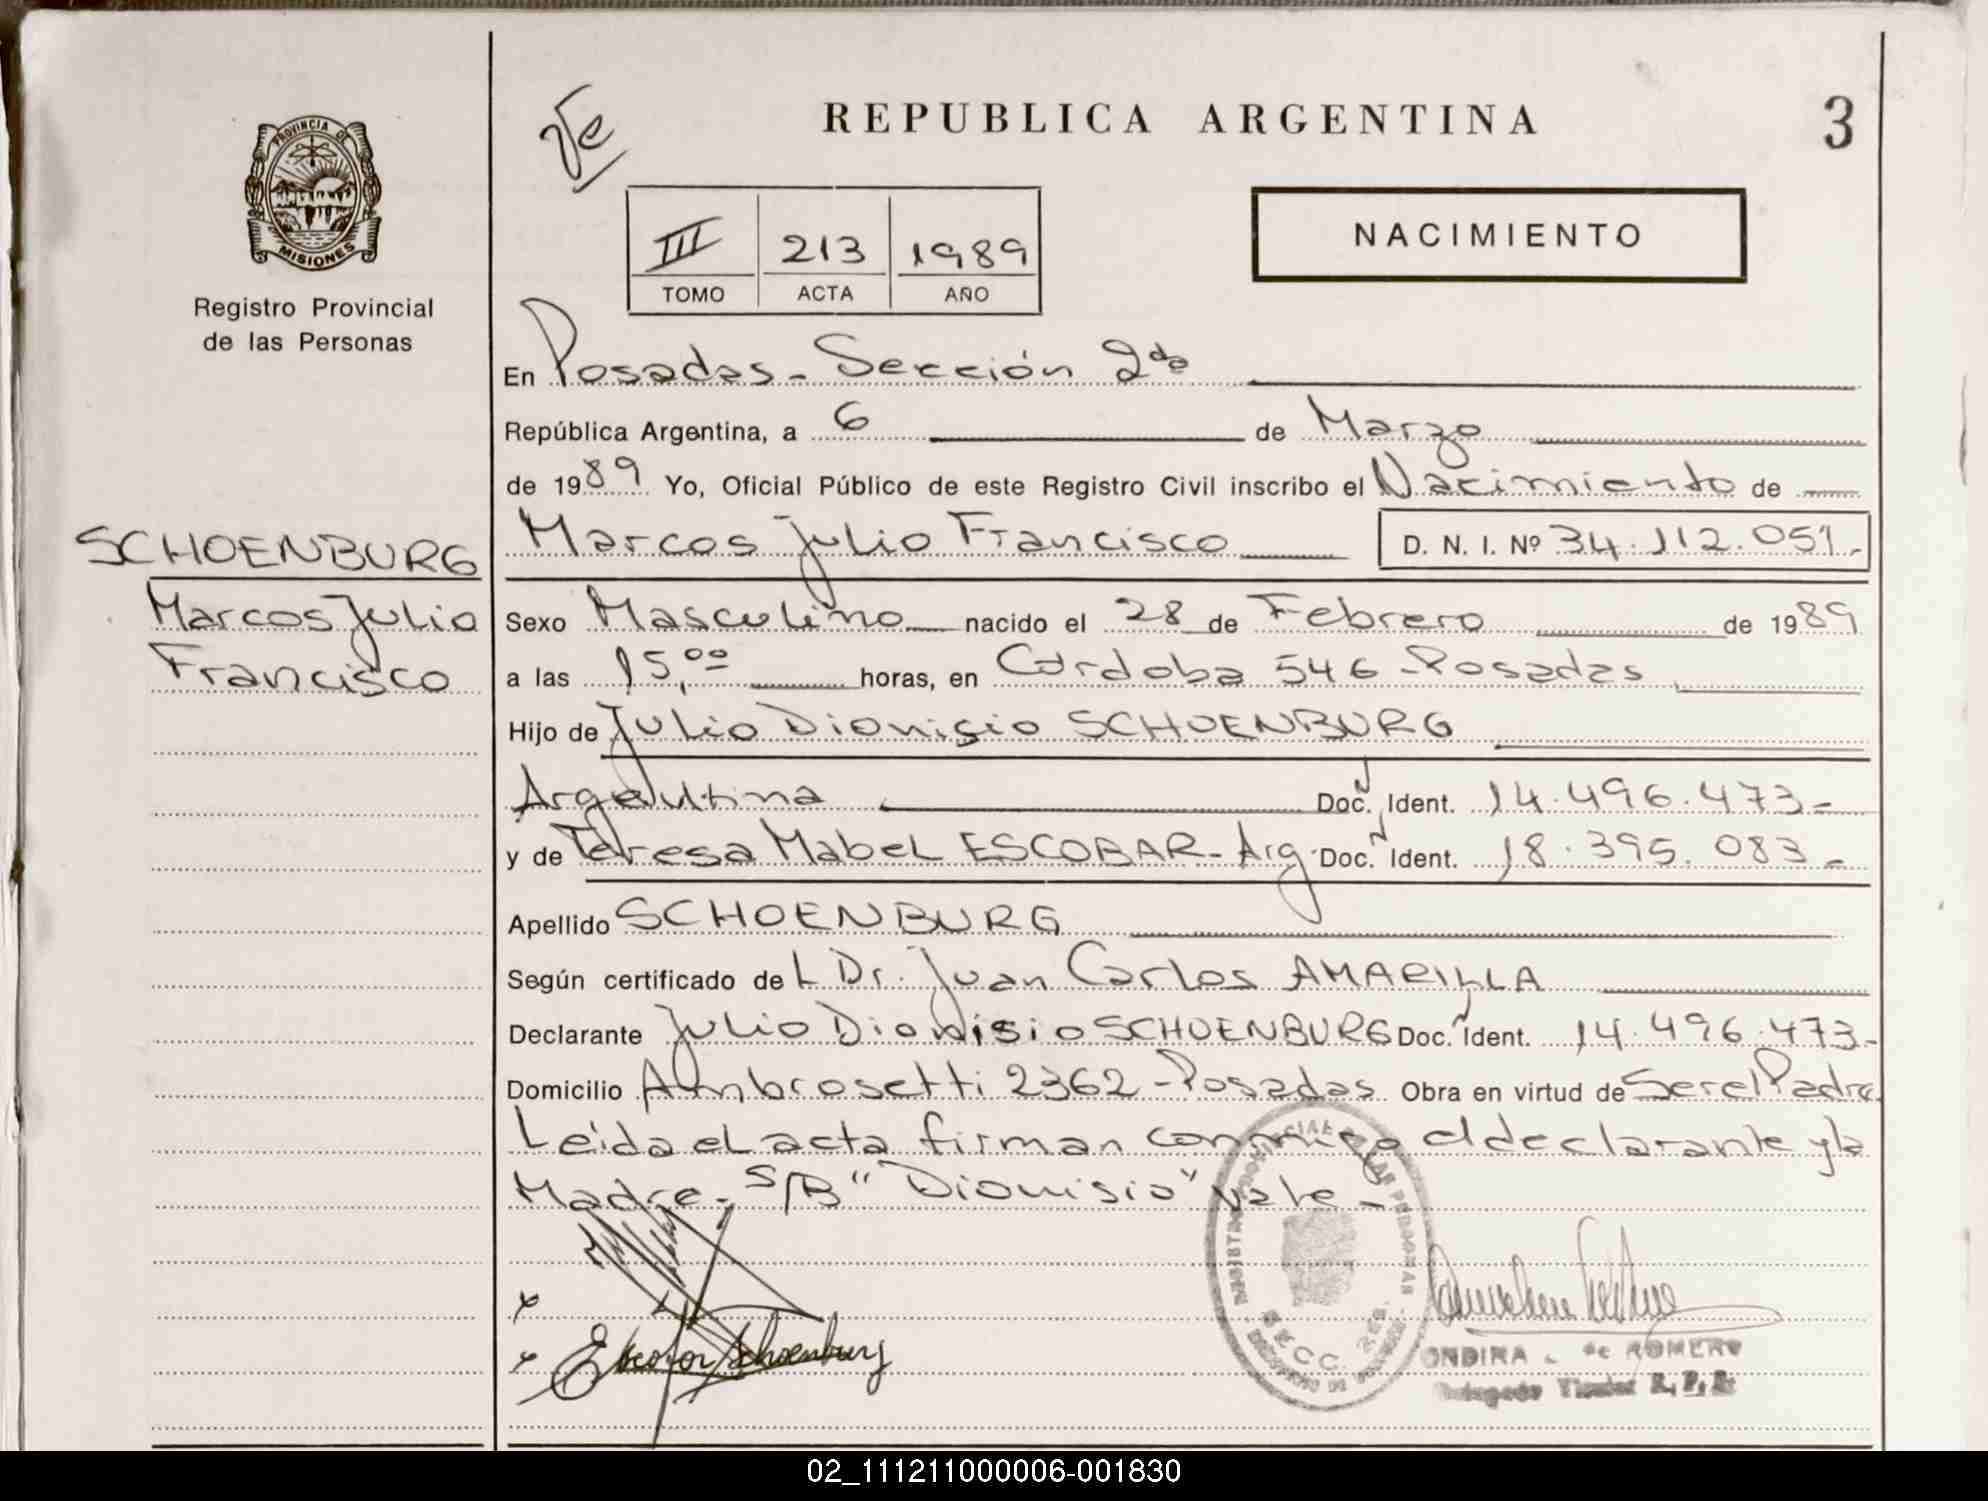 REPUBLICA ARGENTINA
3
PROVINCIA DE
MISIONES
Registro Provincial
de las Personas
III 213 1989
TOMO ACTA AÑO
NACIMIENTO
En Posadas - Sección 2da
República Argentina, a 6 de Marzo
de 1989 Yo, Oficial Público de este Registro Civil inscribo el Nacimiento de
Marcos Julio Francisco D. N. I. Nº 34.112.051.-
SCHOENBURG
Marcos Julio
Francisco
Sexo Masculino nacido el 28 de Febrero de 1989
a las 15,00 horas, en Córdoba 546 - Posadas
Hijo de Julio Dionisio SCHOENBURG
Argentina Doc. Ident. 14.496.473-
y de Teresa Mabel ESCOBAR - Arg. Doc. Ident. 18.395.083-
Apellido SCHOENBURG
Según certificado de L Dr. Juan Carlos AMARILLA
Declarante Julio Dionisio SCHOENBURG Doc. Ident. 14.496.473-
Domicilio Ambrosetti 2362 - Posadas Obra en virtud de Ser el Padre
Leida el acta firman conmigo el declarante y la
Madre - S/B "Dionisio" Vale -
Escobar Schoenburg
SECC. 2da.
ONDINA de ROMERO
Delegado Titular R. P. P.
02_111211000006-001830